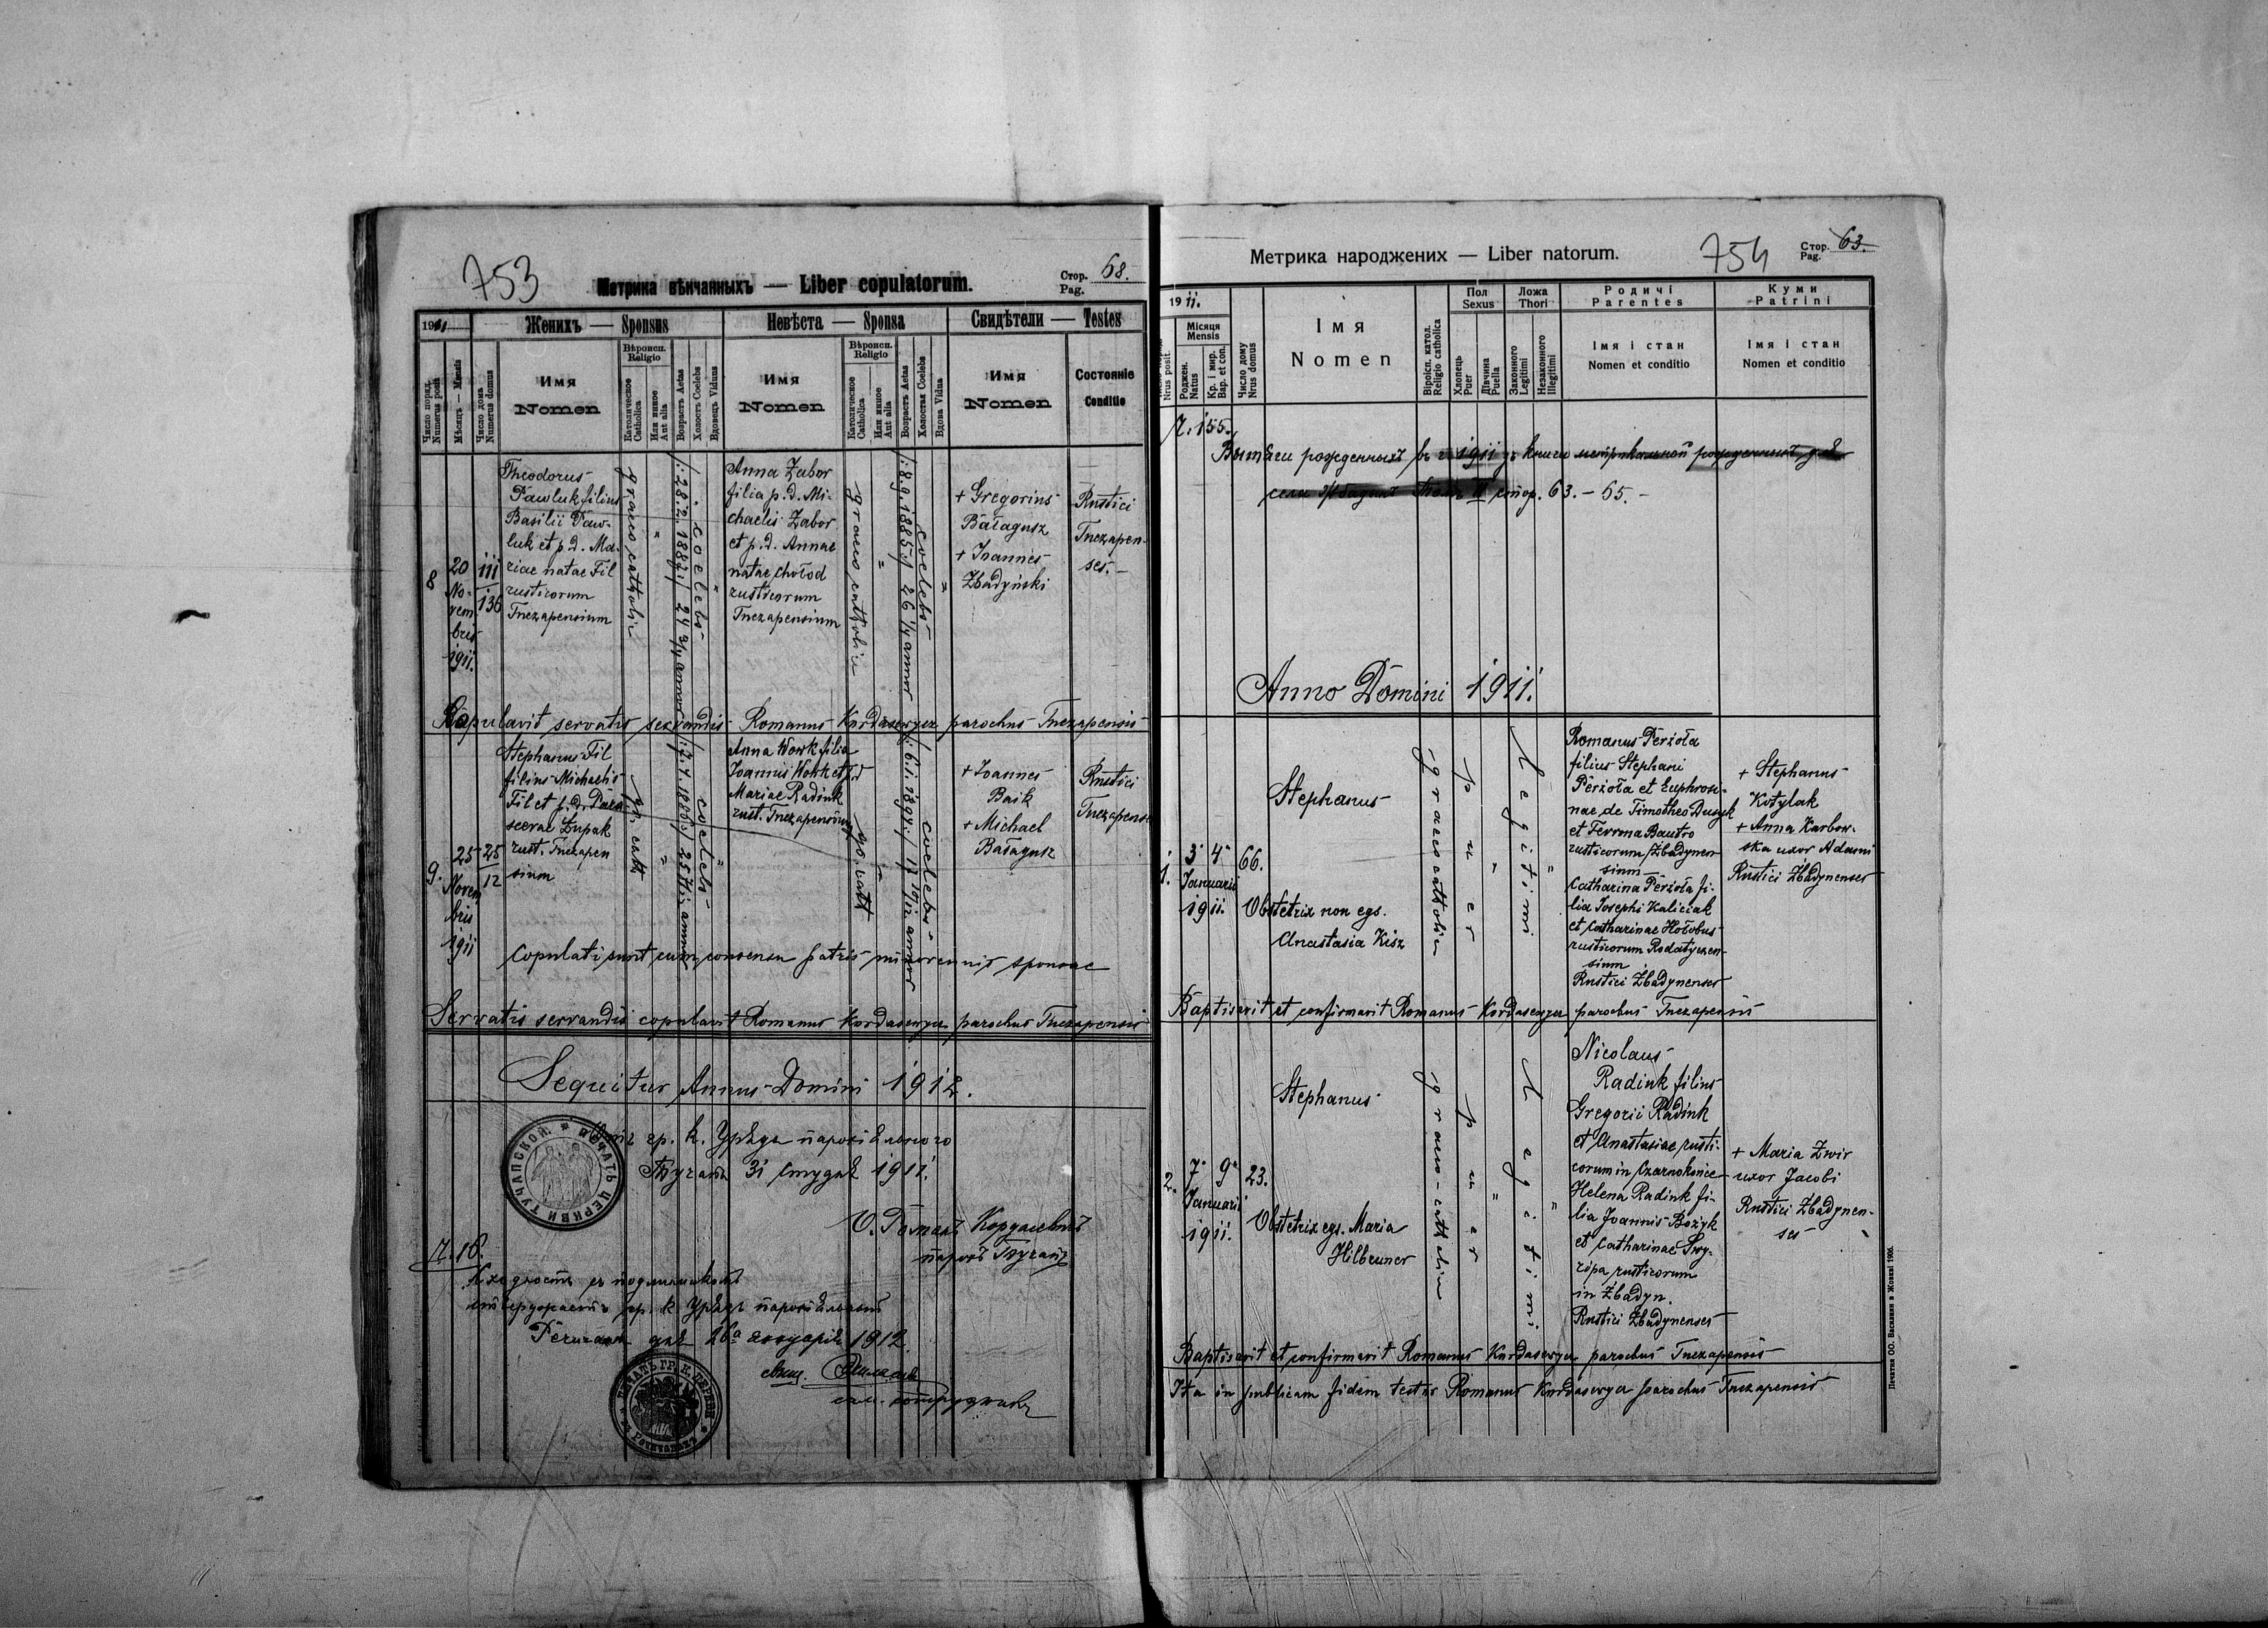 753
Метрика вѣнчанныхъ — Liber copulatorum.
Стор. 68.
Pag.
1911
Женихъ — Sponsus
Невѣста — Sponsa
Свидѣтели — Testes
Число поряд.
Numerus posit
Мѣсяць — Mensis
Число дома
Numerus domus
Имя
Nomen
Вѣроисп.
Religio
Католическое
Catholica
Или иное
Aut alia
Возрастъ Aetas
Холостъ Coelebs
Вдовецъ Viduus
Имя
Nomen
Вѣроисп.
Religio
Католическое
Catholica
Или иное
Aut alia
Возрастъ Aetas
Холостая Coelebs
Вдова Vidua
Имя
Nomen
Состояніе
Conditio
8
20
No-
vem
bris
1911.
111
136
Theodorus
Pawluk filius
Basilii Paw-
luk et p. d. Ma-
riae natae Fil
rusticorum
Tuczapensium
graeco catholic
"
/: 28.2. 1887 :/ 24 3/4 annor
coelebs
"
Anna Zabor
filia p. d. Mi-
chaelis Zabor
et p. d. Annae
natae Chołod
rusticorum
Tuczapensium
graeco catholic
"
/: 8.9. 1885 :/ 26 1/4 annor
coelebs
"
+ Gregorius
Bałagusz
+ Ioannes
Zbadyński
Rustici
Tuczapen-
ses. -
Copulavit servatis servandis Romanus Kordasewycz parochus Tuczapensis
9.
25
Novem
bris
1911
25
12
Stephanus Fil
filius Michaelis
Fil et p. d. Para-
scevae Żupak
rust. Tuczapen
sium
gr. cath
"
coelebs
"
Anna Wowk filia
Joannis Wowk et p. d
Mariae Radiuk
rust. Tuczapensium
gr. cath
"
coelebs
+ Ioannes
Baik
+ Michael
Bałagusz
Rustici
Tuczapens
Copulati sunt cum consensu patris minorennis sponsae
Servatis servandis copulavit Romanus Kordasewycz parochus Tuczapensis
Sequitur Annus Domini 1912.
гр. к. Урядъ парохіяльного
Тучапы 31 студня 1911.
О. Романъ Кордасевичъ
парохъ Тучапъ
ПЕЧАТЬ ЦЕРКВИ ТУЧАПСКОЙ.
Ч. 16.
гр. к. Урядъ парохіяльный
дня 26а януарія 1912.
свящ.
сотрудникъ
ПЕЧАТЬ ГР. К. ЦЕРКВИ
754
Метрика народжених — Liber natorum.
Стор. 63.
Pag.
1911.
Nrus posit.
Місяця
Mensis
Роджен.
Natus
Кр. і мир.
Bap. et con.
Число дому
Nrus domus
Імя
Nomen
Віроісп. катол.
Religio catholica
Пол
Sexus
Хлопець
Puer
Дівчина
Puella
Ложа
Thori
Законного
Legitimi
Незаконного
Illegitimi
Родичі
Parentes
Імя і стан
Nomen et conditio
Куми
Patrini
Імя і стан
Nomen et conditio
Ч. 155.
Вытягъ рожденныхъ въ г. 1911 зъ книги метрикальной рожденныхъ для
села стор. 63. - 65. -
Anno Domini 1911.
1.
3 4
Januarii
1911.
66.
Stephanus
Obstetrix non egs.
Anastasia Kisz
graeco catholic
puer
"
Legitimi
"
Romanus Perżoła
filius Stephani
Perżoła et Euphrosi-
nae de Timotheo Dusyk
et Ferrona Bautro
rusticorum Zbadynen
sium
Catharina Perżoła fi-
lia Josephi Kaliciak
et Catharinae Hołobus
rusticorum Rodatyczen-
sium
Rustici Zbadynenses
+ Stephanus
Kotylak
+ Anna Karbow-
ska uxor Adami
Rustici Zbadynenses
Baptisavit et confirmavit Romanus Kordasewycz parochus Tuczapensis
2.
7 9
Januarii
1911.
23.
Stephanus
Obstetrix egs. Maria
Hilbruner
graeco-catholic
puer
"
Legitimi
"
Nicolaus
Radiuk filius
Gregorii Radiuk
et Anastasiae rusti-
corum in Czarnokońce
Helena Radiuk fi-
lia Joannis Bożyk
et Catharinae Swy-
ripa rusticorum
in Zbadyn.
Rustici Zbadynenses
+ Maria Zwir
uxor Jacobi
Rustici Zbadynen-
ses
Baptisavit et confirmavit Romanus Kordasewycz parochus Tuczapensis
Ita in publicam fidem testor Romanus Kordasewycz parochus Tuczapensis
Печатня ОО. Василиян в Жовкві 1906.